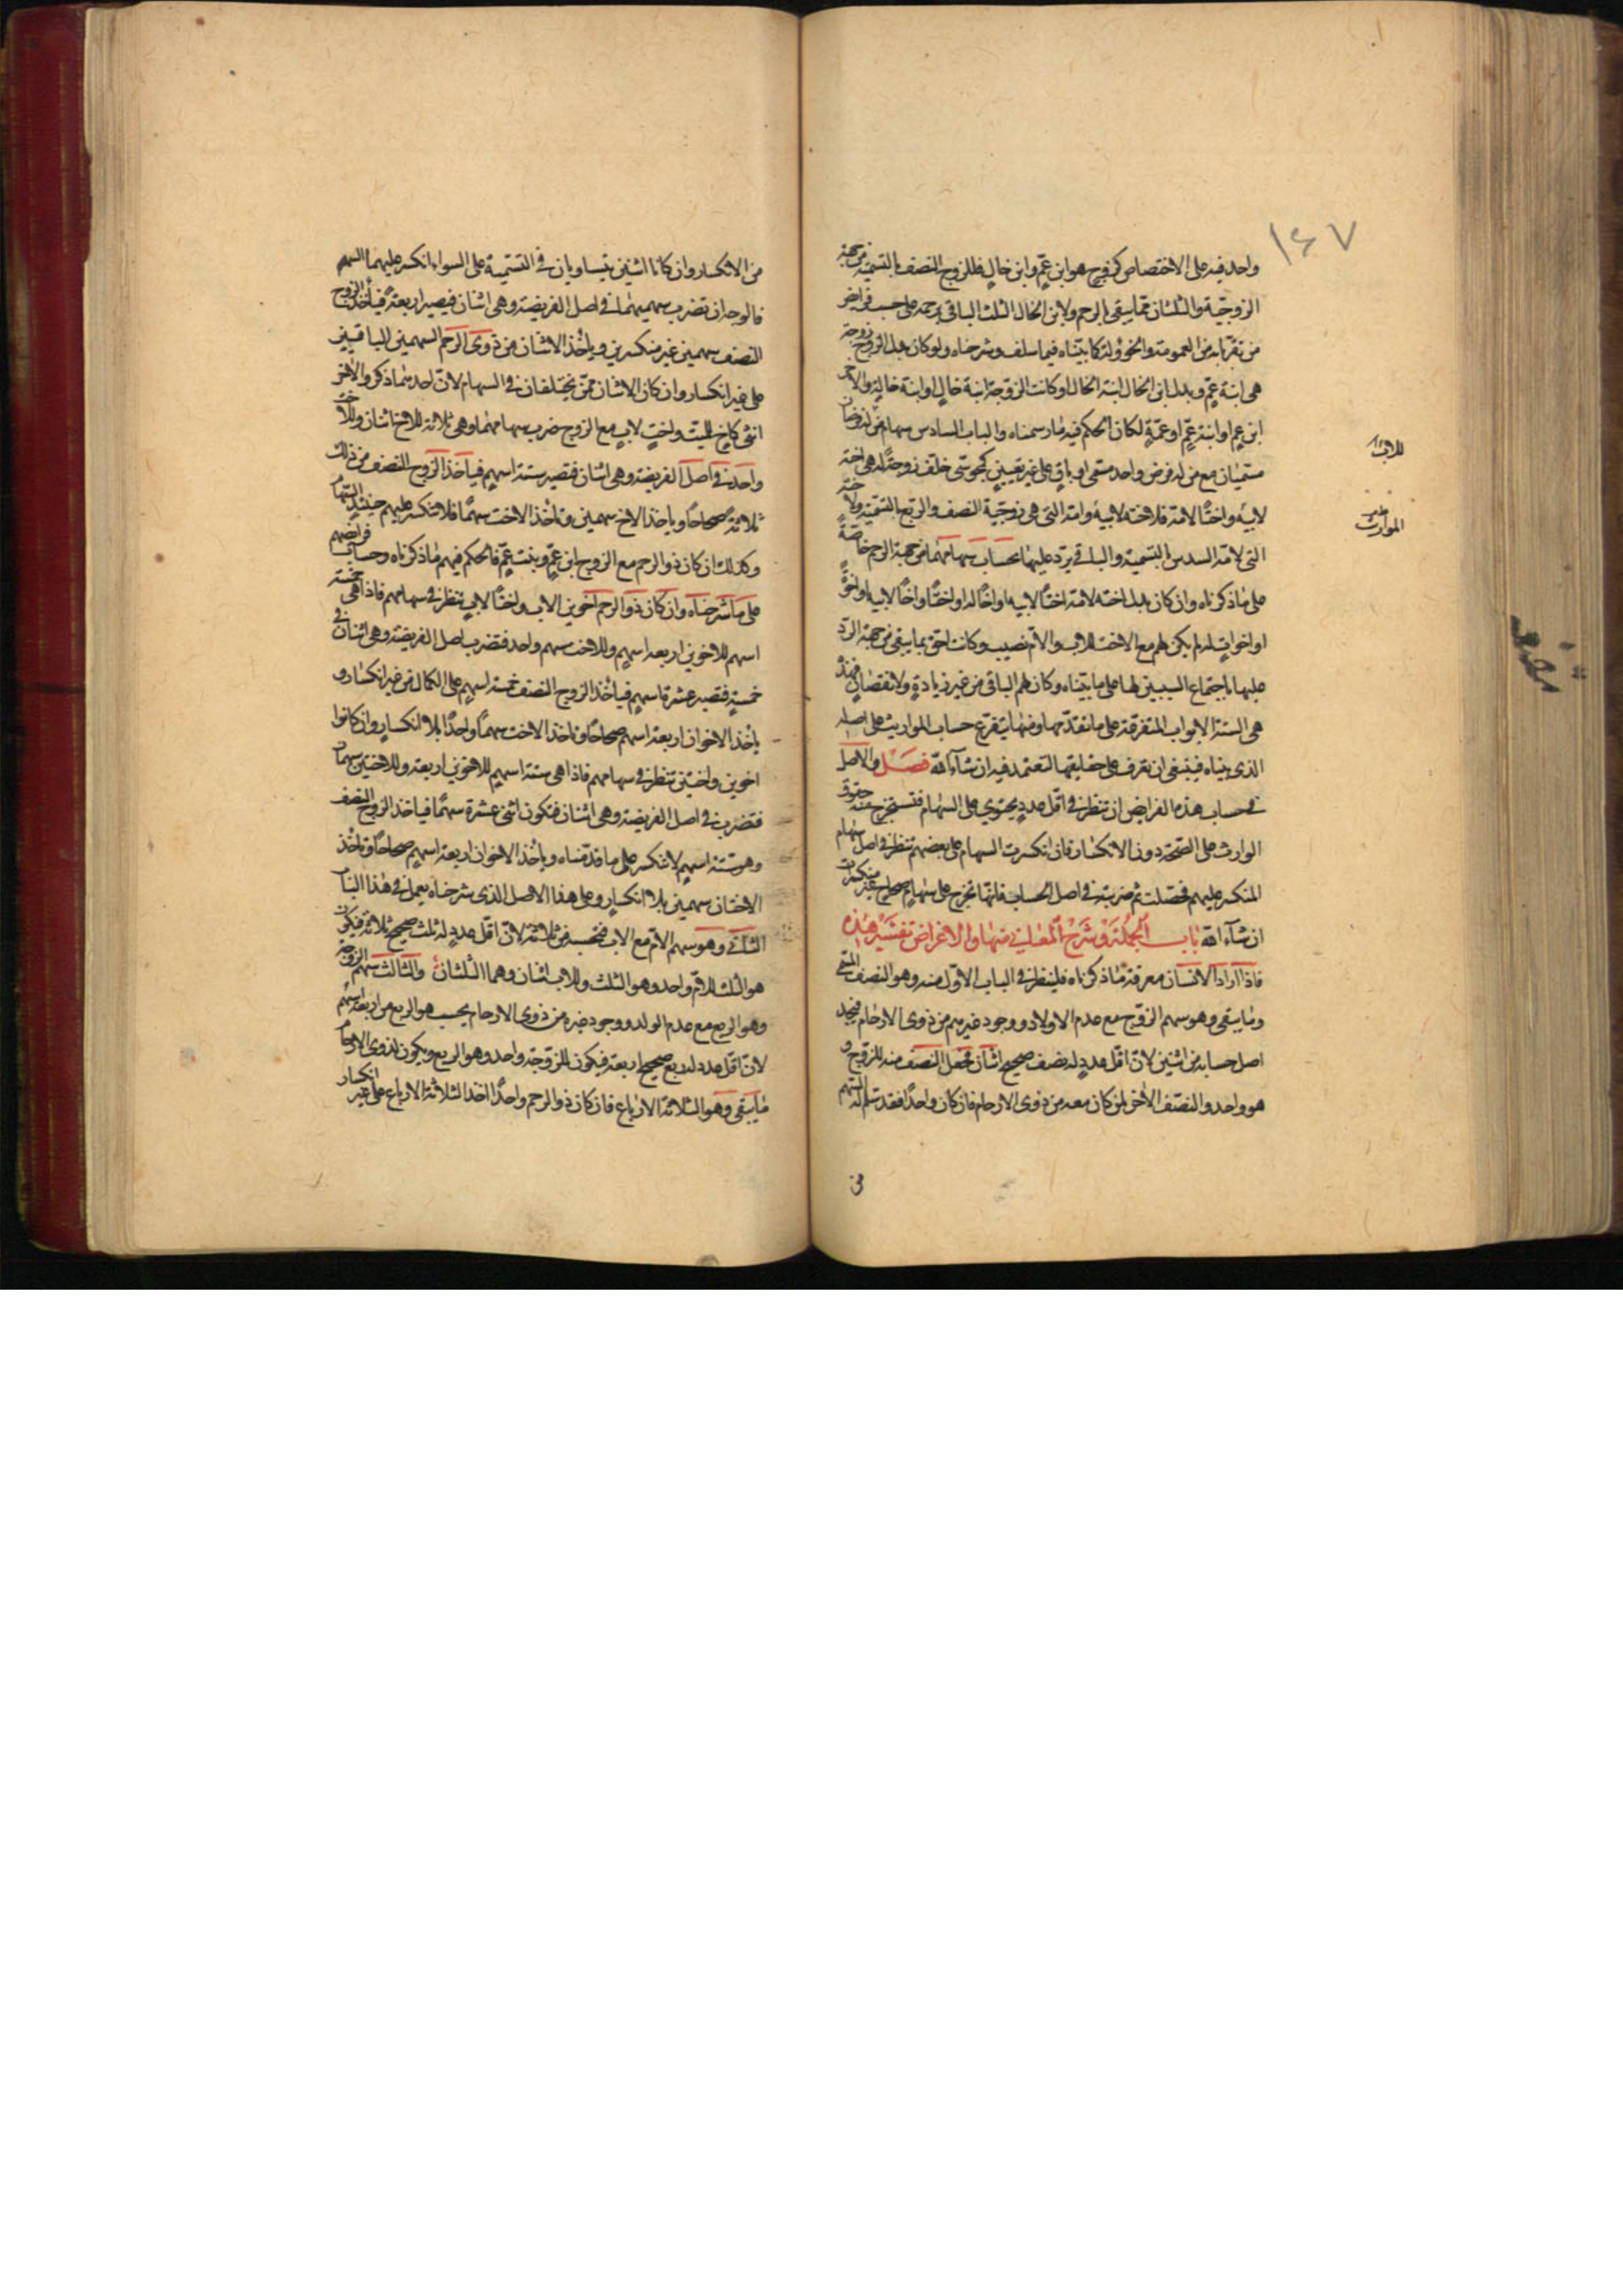 ١٤٧
واحد فيه على الاختصاص كزوج هو ابن عمّ وابن خال فللزوج النصف بالتسمية من جهة
الزوجيّة والثلثان ممّا يبقى بالرحم ولابن الخال الثلث الباقي برحمه على حسب فرائض
من تقرّبا به من العمومة والخؤولة كما بيّناه فيما سلف وشرحناه ولو كان بدل الزوج زوجة
هي ابنة عمّ وبدل ابن الخال ابنة الخال او كانت الزوجة ابنة خال او ابنة خالة والآخر
ابن عم او ابنة عمّ او عمّة لكان الحكم فيه ما رسمناه والباب السادس سهام من له فرضان
مسمّيان مع من له فرض واحد مسمى او باق على غير تعيين كمجوسّى خلف زوجة له هي اخته
لابيه واختًا لامّه فلاخته لابيه وامّه التي هي زوجيّة النصف والربع بالتسمية ولاخته
التي لامّه السدس بالتسمية والباقي يردّ عليها بحساب سهامهما من جهة الرحم خاصّة
على ما ذكرناه وان كان بدل اخته لامّه اختًا لابيه او اخًا له او اختًا واخًا لابيه او اخوة
او اخوات له لم يكن لهم مع الاخت للاب والامّ نصيب وكانت احق بما يبقى من جهة الردّ
عليها باجتماع السببين لها على ما بيّناه وكان لهم الباقي من غير زيادة ولا نقصان فهذه
هي الستة الابواب المتفرقة على ما تقدّمها ومنها يتفرع حساب المواريث على اصله
الذي بنياه فينبغي ان تعرف على حقايقها لتعتمد فيه ان شآء الله فصل والاصل
في حساب هذه الفرايض ان تنظر في اقل عدد يحتوي على السهام فتستخرج منه حقوق
الوارث على الصّحّة دون الانكسار فان انكسرت السهام على بعضهم تنظر في اصل سهام
المنكسر عليهم فحصّلت ثم ضربته في اصل الحساب فانّها تخرج على سهام صحاح غير منكسرات
ان شآء الله باب الجملة وشرح المعاني منها والاغراض تفسير هذه
فاذا اراد الانسان معرفة ما ذكرناه فلينظر في الباب الاوّل منه وهو النصف المسمى
وما يبقى وهو سهم الزوج مع عدم الاولاد ووجود غيرهم من ذوى الارحام فيجد
اصل حسابه من اثنين لانّ اقل عدد له نصف صحيح اثنان فجعل النصف منه للزوج و
هو واحد والنصف الآخر لمن كان معه من ذوى الارحام فان كان واحدًا فقد سلم له السهم
من
من الانكسار وان كانا اثنين يتساويان في التسمية على السواء انكسر عليهما السهم
فالوجه ان تضرب سهميهما في اصل الفريضة وهي اثنان فيصير اربعة فيأخذ الزوج
النصف سهمين غير منكسرين ويأخذ الاثنان من ذوى الرحم السهمين الباقيين
على غير انكسار وان كان الاثنان ممّن يختلفان في السهام لانّ احدهما ذكر والآخر
انثى كاخ للميت واخت لاب مع الزوج ضرب سهامهما وهي ثلاثة للاخ اثنان وللاخت
واحد في اصل الفريضة وهي اثنان فتصير ستة اسهم فياخذ الزوج النصف من ذلك
ثلاثة صحاحًا وياخذ الاخ سهمين وتأخذ الاخت سهمًا فلا تنكسر عليهم حينئذ السهام
وكذلك ان كان ذو الرحم مع الزوج ابن عمّ وبنت عمّ فالحكم فيهم ما ذكرناه وحساب فرائضهم
على ما شرحناه وان كان ذو الرحم اخوين الاب واختًا لاب تنظر في سهامهم فاذا هي خمسة
اسهم للاخوين اربعة اسهم وللاخت سهم واحد فتضرب اصل الفريضة وهي اثنان في
خمسة فتصير عشرة اسهم فيأخذ الزوج النصف خمسة اسهم على الكمال من غير انكسار و
يأخذ الاخوان اربعة اسهم صحاحًا وتاخذ الاخت سهمًا واحدًا بلا انكسار وان كانوا
اخوين واختين تنظر في سهامهم فاذا هي ستة اسهم للاخوين اربعة وللاختين سهمان
فتضرب في اصل الفريضة وهي اثنان فتكون اثنى عشرة سهمًا فياخذ الزوج النصف
وهو ستة اسهم لا تنكسر على ما قدّمناه ويأخذ الاخوان اربعة اسهم صحاحًا وتاخذ
الاختان سهمين بلا انكسار وعلى هذا الاصل الذى شرحناه يعمل في هذا الباب
الثاني وهو سهم الامّ مع الاب فتحسبه من ثلاثة لانّ اقل عدد له ثلث صحيح ثلاثة فيكون
هو الثلث للامّ واحد وهو الثلث وللاب اثنان وهما الثلثان والثالث سهم الزوجة
وهو الربع مع عدم الولد ووجود غيره من ذوى الارحام يحسب هو الربع من اربعة اسهم
لانّ اقل عدد له ربع صحيح اربعة فيكون للزوجة واحد وهو الربع ويكون لذوى الارحام
ما يبقى وهو الثلاثة الارباع فان كان ذو الرحم واحدًا اخذ الثلاثة الارباع على غير انكسار